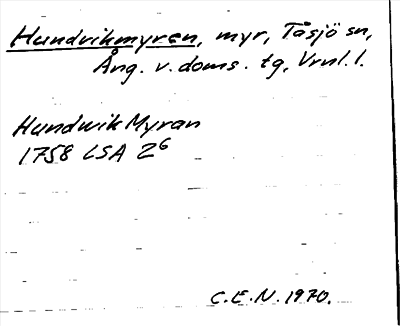 Hundvikmyren, myr, Tåsjö sn,
Ång. v. doms. tg, Vrnl. l.
Hundwik Myran
1758 LSA Z6
C.E.N. 1970.